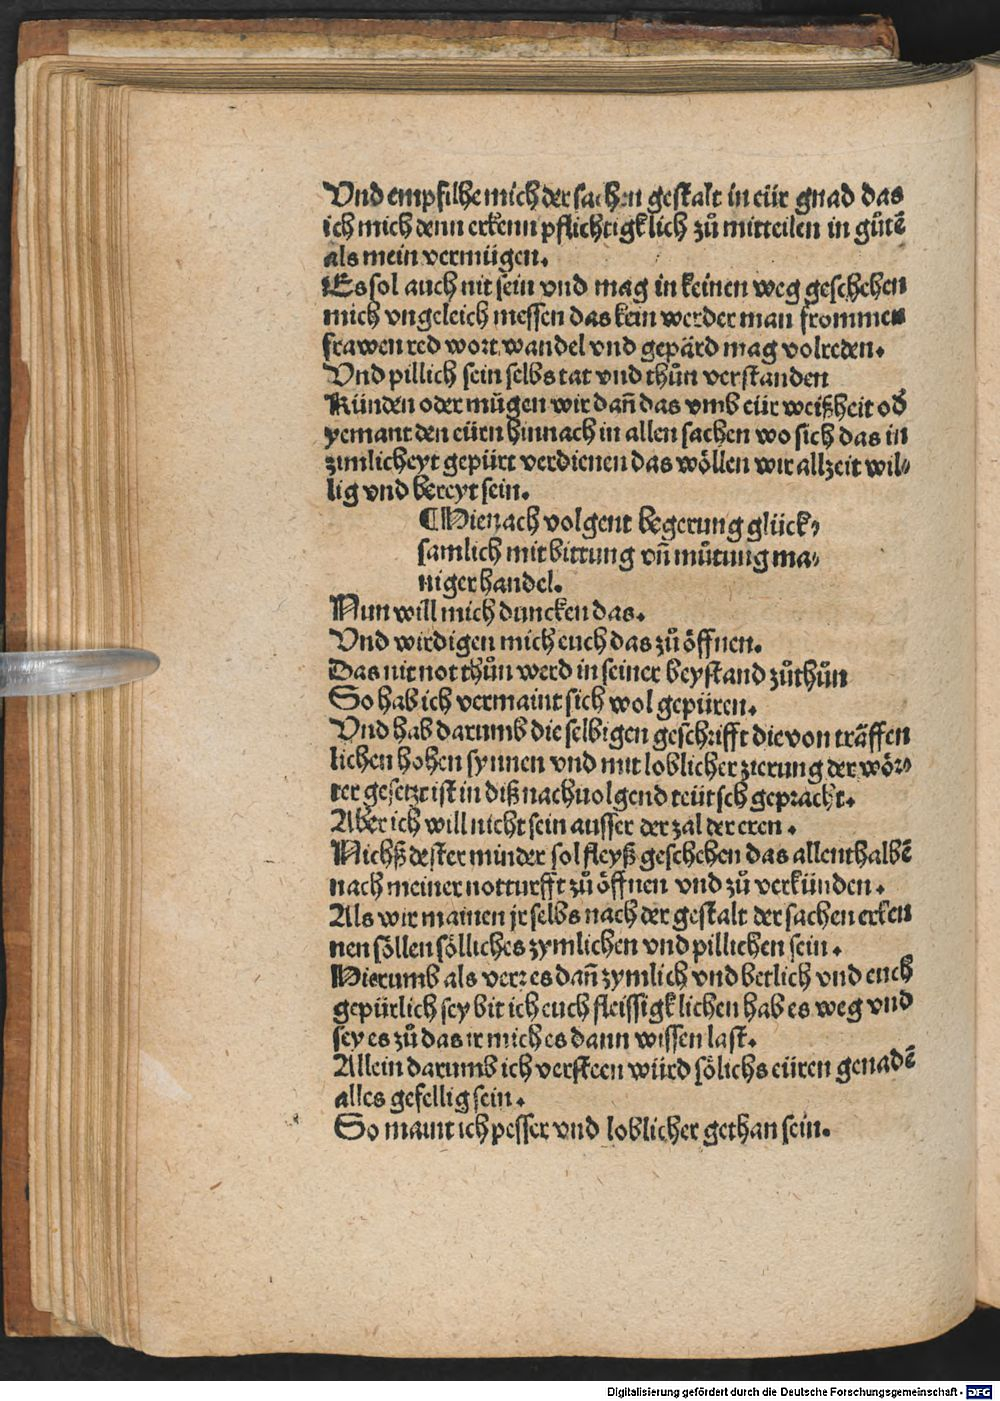 Vnd empfilhe mich der sachen gestalt in eür gnad das
ich mich denn erkenn pflichtigklich zů mitteilen in gůtē
als mein vermügen.
Es sol auch nit sein vnd mag in keinen weg geschehen
mich vngeleich messen das kein werder man frommen
frawen red wort wandel vnd gepärd mag volreden.
Vnd pillich sein selbs tat vnd thůn verstanden
Künden oder mügen wir dañ das vmb eür weißheit od̕
yemant den eürn hinnach in allen sachen wo sich das in
zimlicheyt gepürt verdienen das wöllen wir allzeit wil⸗
lig vnd bereyt sein.
¶Hienach volgent begerung glück⸗
samlich mit bittung vñ můtung ma⸗
niger handel.
Nun will mich duncken das.
Vnd wirdigen mich euch das zů öffnen.
Das nit not thůn werd in seiner beystand zůthůn
So hab ich vermaint sich wol gepüren.
Vnd hab darumb die selbigen geschrifft die von träffen
lichen hohen synnen vnd mit loblicher zierung der wör⸗
ter gesetzt ist in diß nachuolgend teütsch gepracht.
Aber ich will nicht sein ausser der zal der eren.
Nichß dester minder sol fleyß geschehen das allenthalbē
nach meiner notturfft zů öffnen vnd zů verkünden.
Als wir mainen jr selbs nach der gestalt der sachen erken
nen söllen sölliches zymlichen vnd pillichen sein.
Hierumb als verr es dañ zymlich vnd betlich vnd euch
gepürlich sey bit ich euch fleissigklichen hab es weg vnd
sey es zů das ir mich es dann wissen last.
Allein darumb ich versteen würd sölichs eüren genadē
alles gefellig sein.
So maint ich pesser vnd loblicher gethan sein.
Digitalisierung gefördert durch die Deutsche Forschungsgemeinschaft - DFG